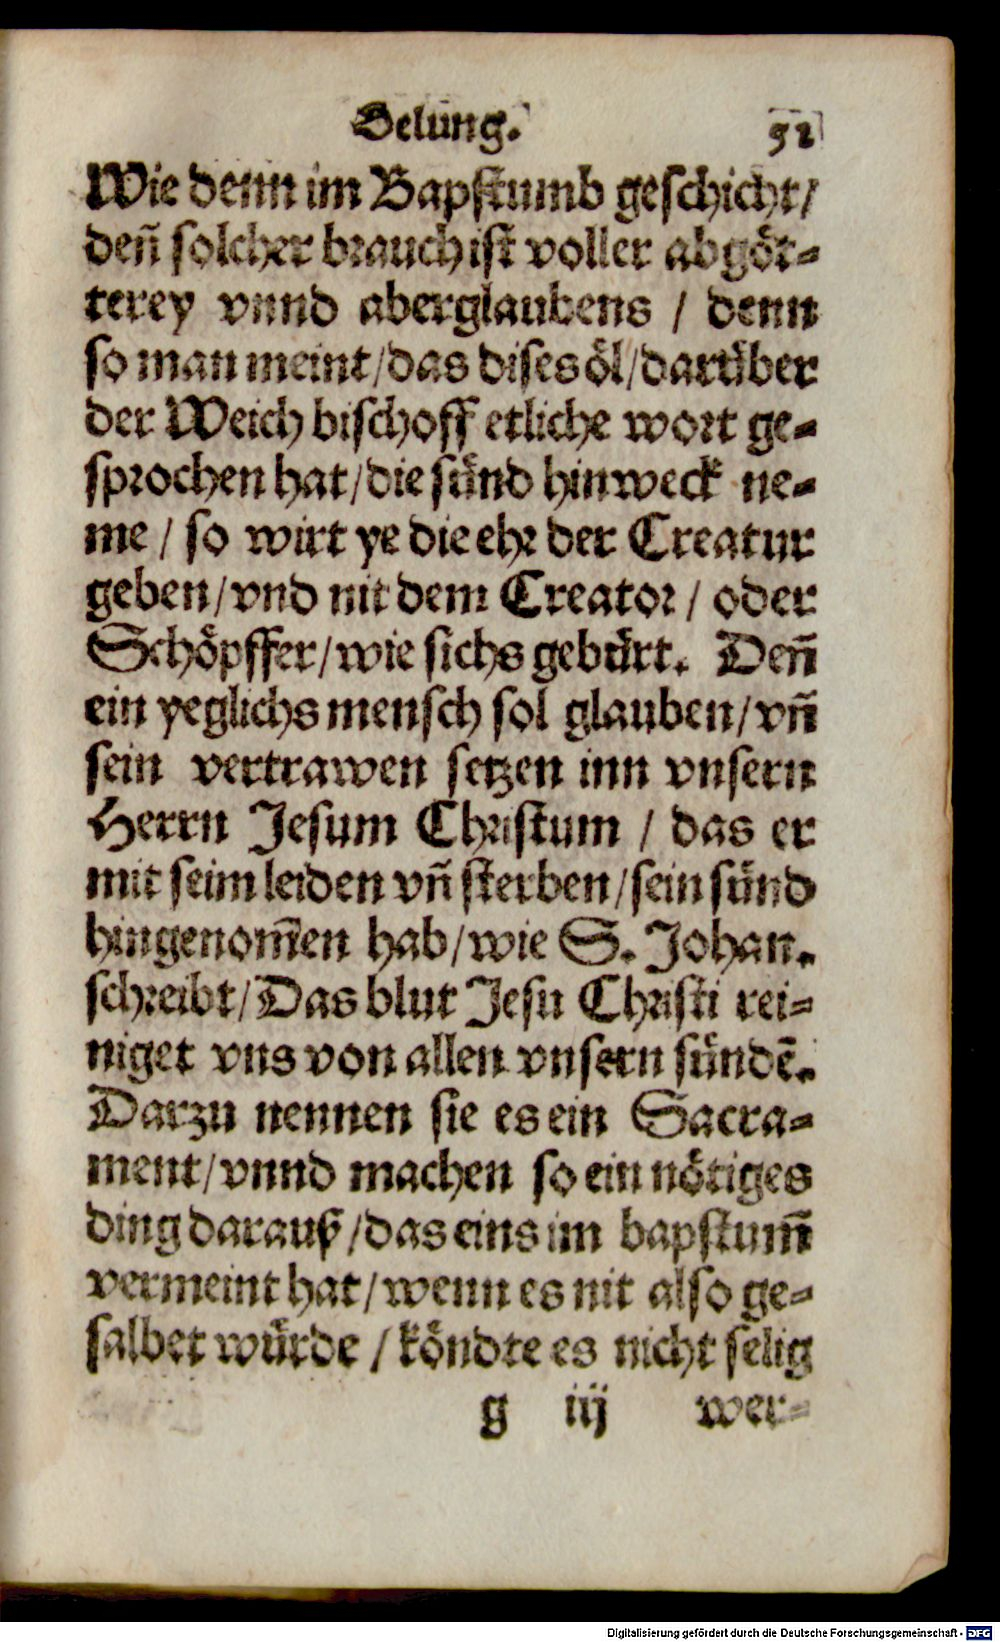 Oelung. 52
Wie denn im Bapſtumb geſchicht/
deñ ſolcher brauch iſt voller abgöt⸗
terey vnnd aberglaubens / denn
ſo man meint/das diſes öl/darüber
der Weich biſchoff etliche wort ge⸗
ſprochen hat/die ſünd hinweck ne⸗
me / ſo wirt ye die ehr der Creatur
geben/vnd nit dem Creator/ oder
Schöpffer/wie ſichs gebürt. Deñ
ein yeglichs menſch ſol glauben/vñ
ſein vertrawen ſetzen inn vnſern
Herrn Jeſum Chriſtum / das er
mit ſeim leiden vñ ſterben/ſein ſünd
hingenom̃en hab/wie S. Johan.
ſchreibt/Das blut Jeſu Chriſti rei⸗
niget vns von allen vnſern ſündẽ.
Darzu nennen ſie es ein Sacra⸗
ment/vnnd machen ſo ein nötiges
ding darauß/das eins im bapſtum̃
vermeint hat/wenn es nit alſo ge⸗
ſalbet würde / köndte es nicht ſelig
g iij wer⸗
Digitalisierung gefördert durch die Deutsche Forschungsgemeinschaft - DFG